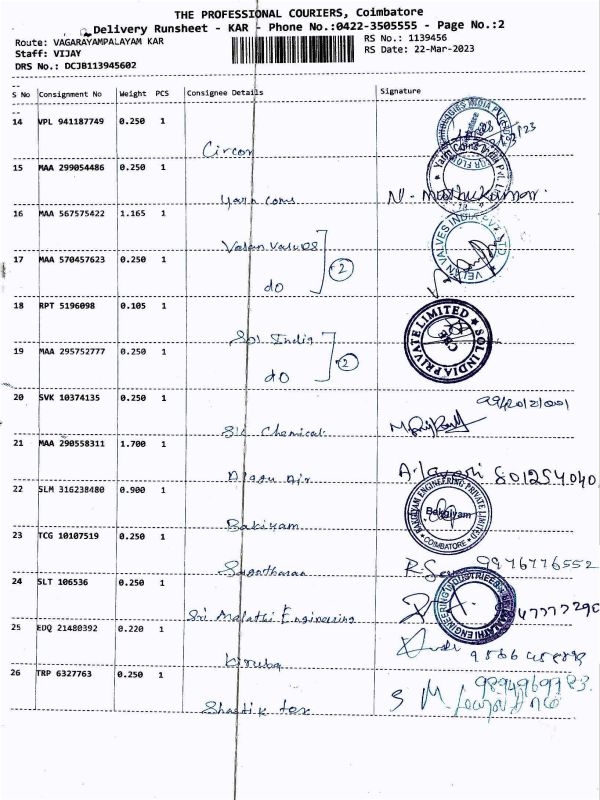 THE PROFESSIONAL COURIERS, Coimbatore
Delivery Runsheet - KAR - Phone No.:0422-3505555 - Page No.:2
Route: VAGARAYAMPALAYAM KAR
RS No.: 1139456
Staff: VIJAY
RS Date: 22-Mar-2023
DRS No.: DCJB113945602
S No Consignment No Weight PCS Consignee Details Signature
14 VPL 941187749 0.250 1
Circor
15 MAA 299054486 0.250 1
Yarn Coms N. Muthukumar
16 MAA 567575422 1.165 1
Velan Valves
VELAN VALVES INDIA PVT LTD
17 MAA 570457623 0.250 1
do 2
18 RPT 5196098 0.105 1
Sol India
SOL INDIA PRIVATE LIMITED
19 MAA 295752777 0.250 1
do 2
20 SVK 10374135 0.250 1
Chemical
21 MAA 290558311 1.700 1
Air 801254040
22 SLM 316238480 0.900 1
Bakiyam
BAKGIYAM ENGINEERING PRIVATE LIMITED
Bakgiyam
COIMBATORE
23 TCG 10107519 0.250 1
9976776552
24 SLT 106536 0.250 1
Sri Malathi Engineering
25 EDQ 21480392 0.220 1
Kiruba
26 TRP 6327763 0.250 1
Shastik tex